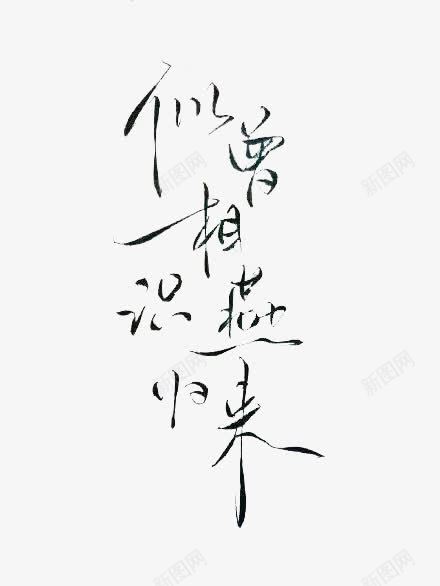 似曾相识燕归来
新图网
新图网
新图网
新图网
新图网
新图网